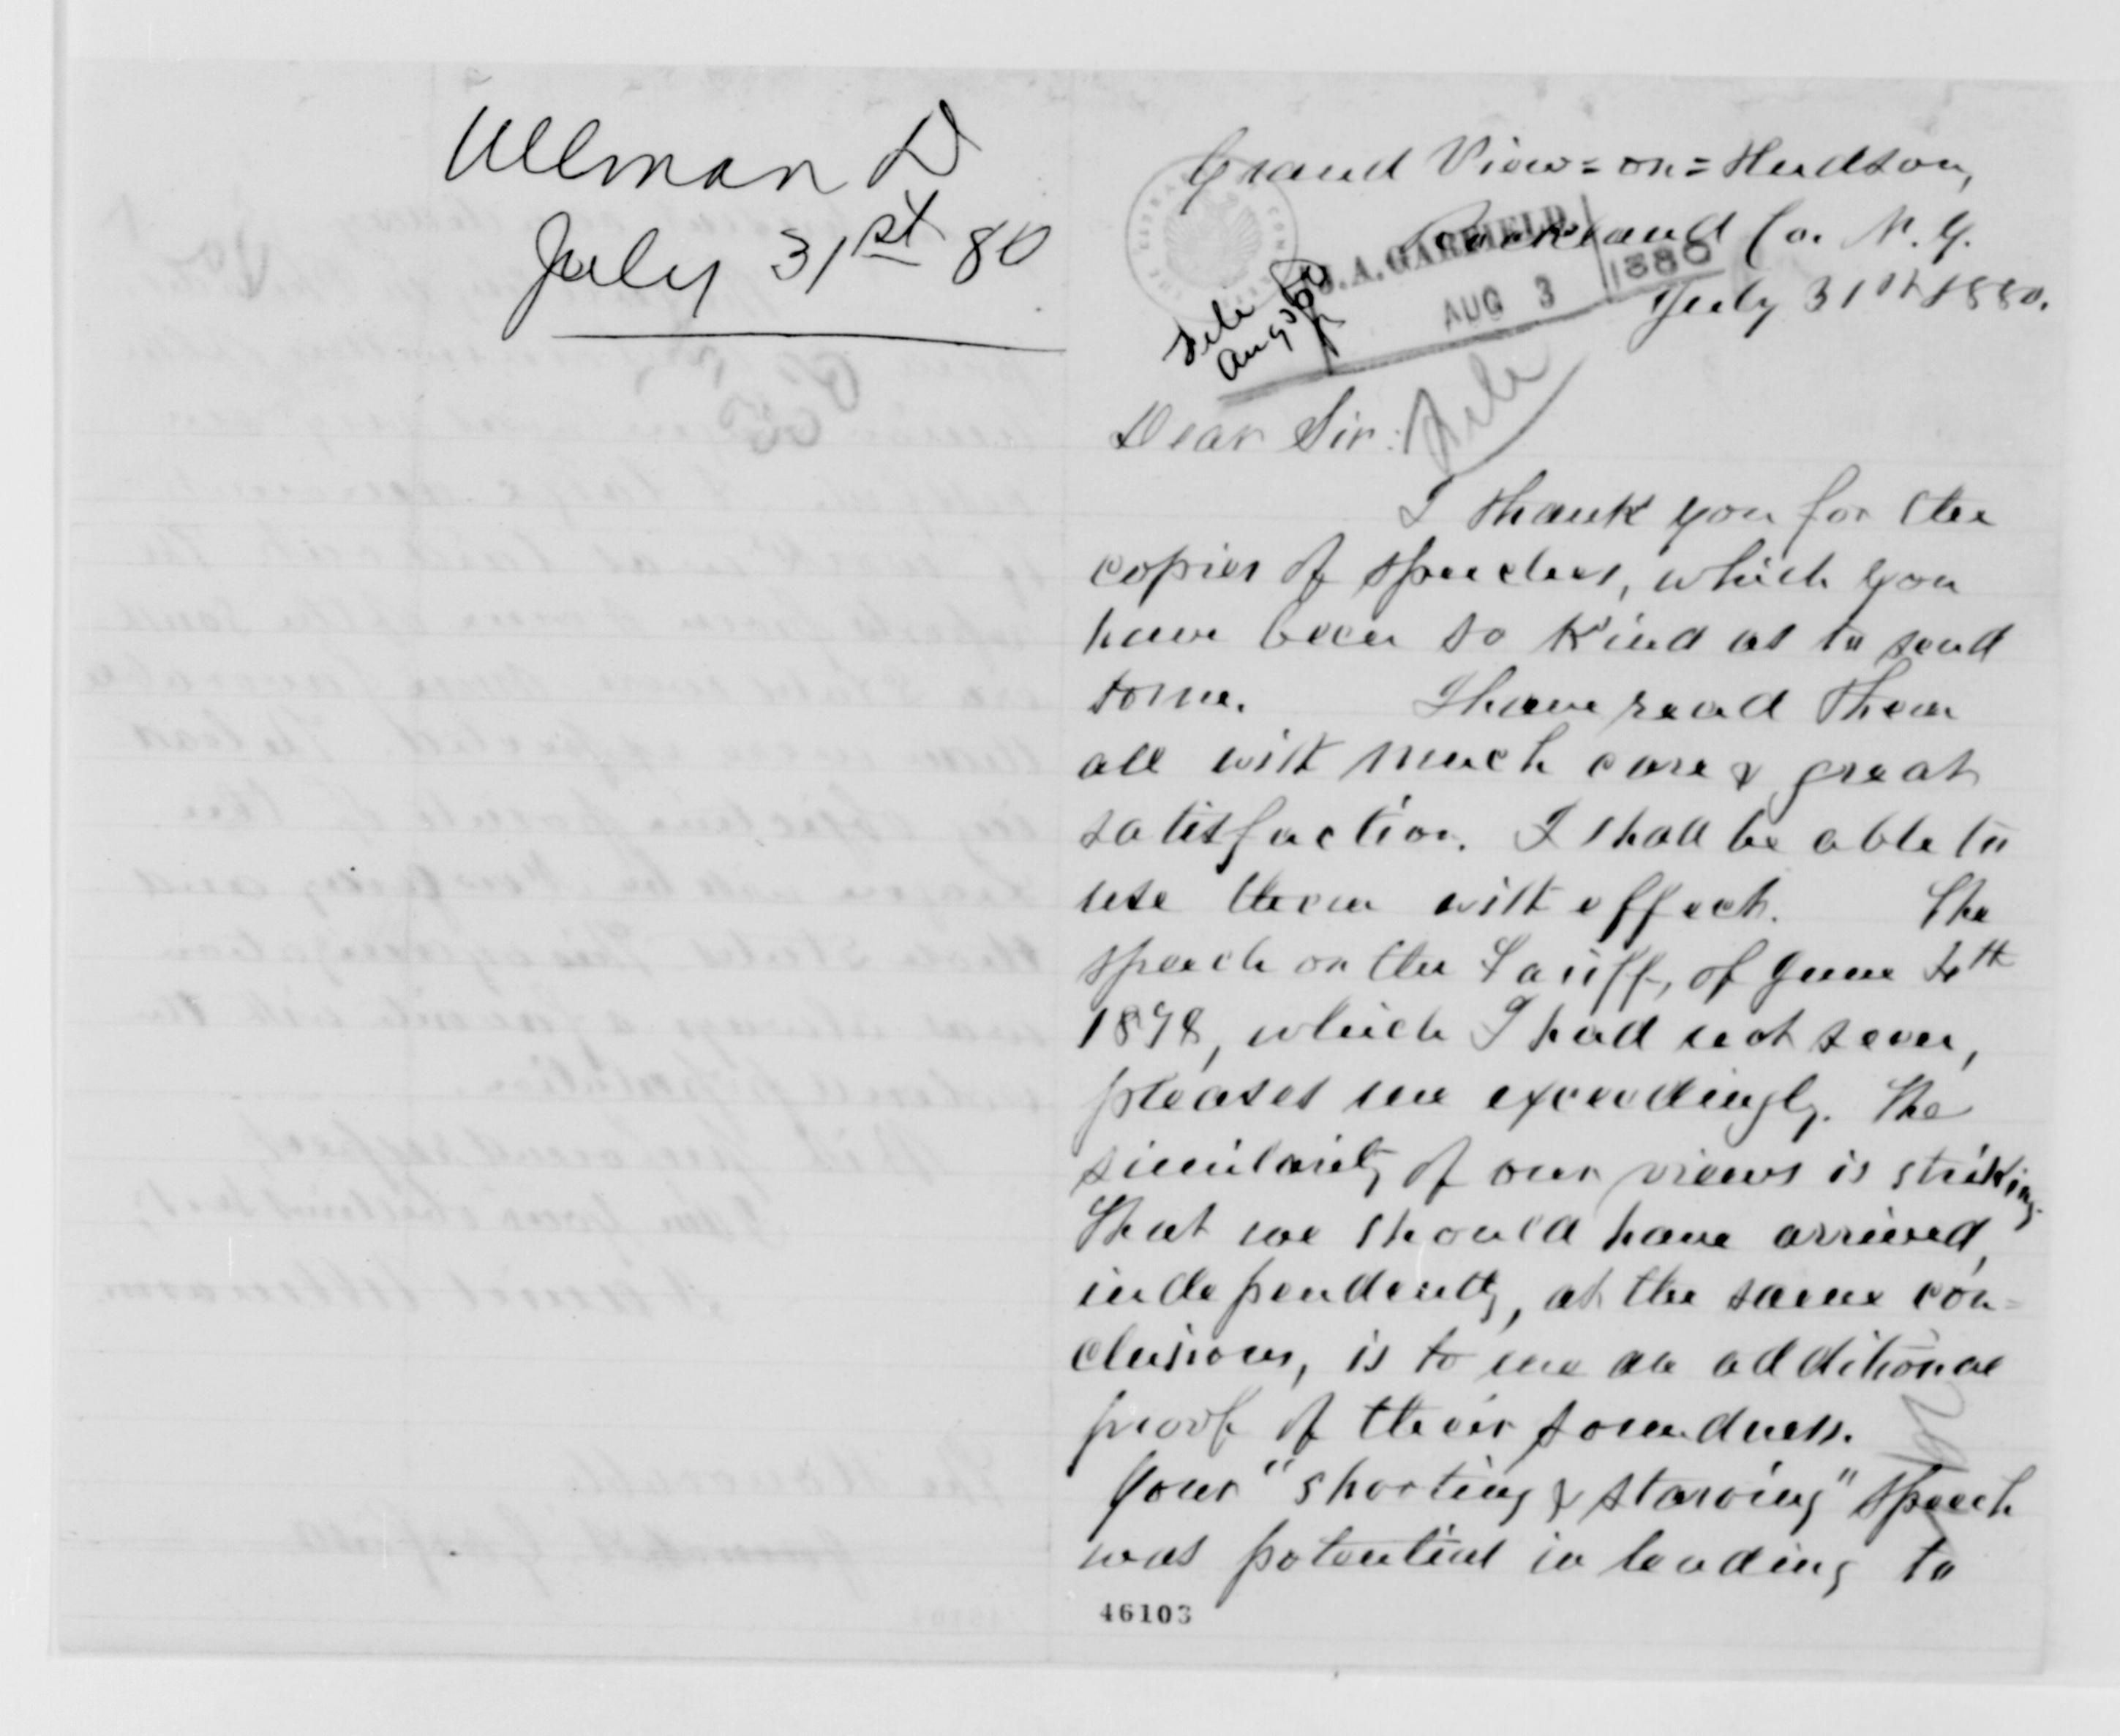 Ullman D
July 31st 80
Grand View=on=Hudson,
Rockland Co. N.Y.
July 31st 1880.
J. A. GARFIELD
AUG 3 1880
File
Aug 3 80
File
Dear Sir:
I thank you for the
copies of speeches, which you
have been so kind as to send
to me. I have read them
all with much care & great
satisfaction. I shall be able to
use them with effect. The
speech on the Tariff, of June 4th
1878, which I had not seen,
pleases me exceedingly. The
similarity of our views is striking.
That we should have arrived,
independently, at the same con=
clusions, is to me an additional
proof of their soundness.
Your "shooting & starving" speech
was potential in leading to
46103